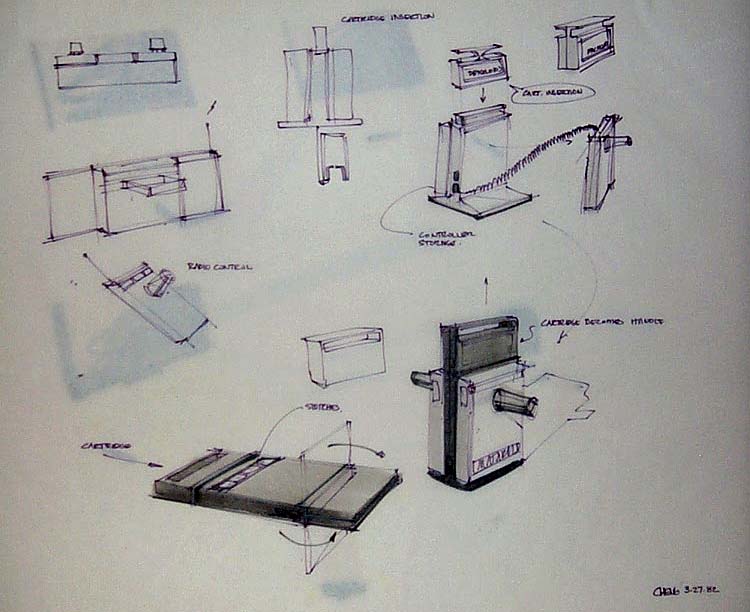 CARTRIDGE INSERTION
CART. INSERTION
CONTROLLER
STORAGE.
RADIO CONTROL
CARTRIDGE BECOMES HANDLE
CARTRIDGE
CHENG 3·27·82